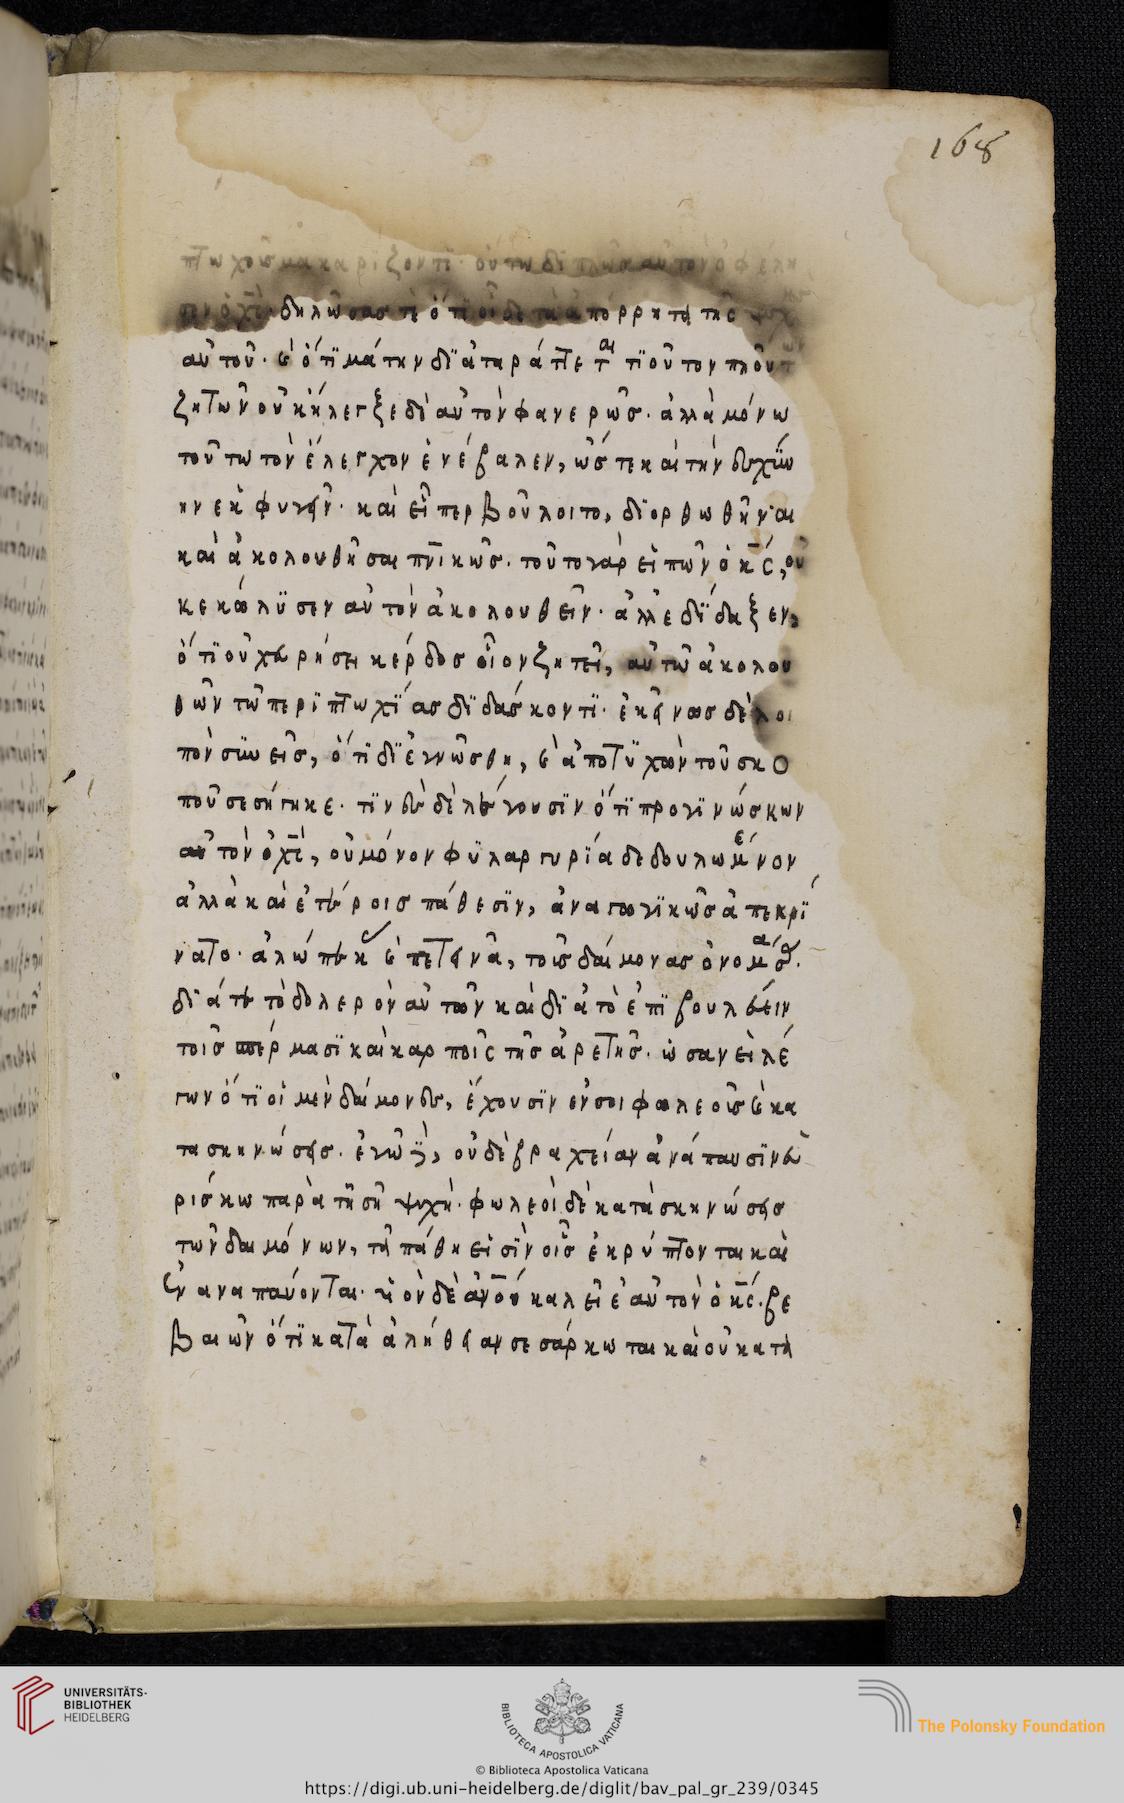 168
πτωχοὺς μακαρίζοντι· οὕτω διπλῶς αὐτὸν ὠφέλη
σεν ὁ χς̅ δηλώσας τὲ ὅτι οἶδε τὰ ἀπόρρητα τῆς
αὐτοῦ· καὶ ὅτι μάτην διαταράττεται τοιοῦτον πλοῦτον
ζητῶν οὐκ ἤλεγξε δὲ αὐτὸν φανερῶς· ἀλλὰ μόνω
τούτω τὸν ἔλεγχον ἐνέβαλεν, ὥστε καὶ τὴν
ην ἐκφυγεῖν· καὶ εἴπερ βούλοιτο, διορθωθῆναι
καὶ ἀκολουθῆσαι πν̅ικῶς· τοῦτο γὰρ εἰπὼν ὁ κς̅, οὐ
κεκώλυσεν αὐτὸν ἀκολουθεῖν· ἀλλ' ἐδίδαξεν,
ὅτι οὐχ εὑρήσει κέρδος οἷον ζητεῖ, αὐτῶ ἀκολου
θῶν τῶ περὶ πτωχίας διδάσκοντι· ἐκεῖνος δὲ λοι
πὸν συνεὶς, ὅτι διεγνώσθη, καὶ ἀποτυχὼν τοῦ σκο
ποῦ σεσήγηκε· τινὲς δὲ λέγουσιν ὅτι προγινώσκων
αὐτὸν ὁ χς̅, οὐ μόνον φυλαργυρία δεδουλωμένον
ἀλλὰ καὶ ἑτέροις πάθεσιν, ἀναγωγικῶς ἀπεκρί
νατο· ἀλώπεκας καὶ πετεινὰ, τοὺς δαίμονας ὀνομάσας·
διά τε τὸ δολερὸν αὐτῶν καὶ διὰ τὸ ἐπιβουλεύειν
τοῖς σπέρμασι καὶ καρποῖς τῆς ἀρετῆς· ὡσανεὶ λέ
γων ὅτι οἱ μὲν δαίμονες, ἔχουσιν ἐν σοι φωλεοὺς καὶ κα
τασκηνώσεις· ἐγὼ δὲ, οὐδὲ βραχεῖαν ἀνάπαυσιν εὑ
ρίσκω παρὰ τῆ σῆ ψυχῆ· φωλεοὶ δὲ κατασκηνώσεις
τῶν δαιμόνων, τὰ πάθη εἰσὶν οἷς ἐκρύπτονται καὶ
ἐναναπαύονται· υἱὸν δὲ ἀνο̅υ καλεῖ ἑαυτὸν ὁ κς̅· βε
βαιῶν ὅτι κατὰ ἀλήθειαν σεσάρκωται καὶ οὐ κατὰ
UNIVERSITÄTS-
BIBLIOTHEK
HEIDELBERG
BIBLIOTECA APOSTOLICA VATICANA
The Polonsky Foundation
© Biblioteca Apostolica Vaticana
https://digi.ub.uni-heidelberg.de/diglit/bav_pal_gr_239/0345